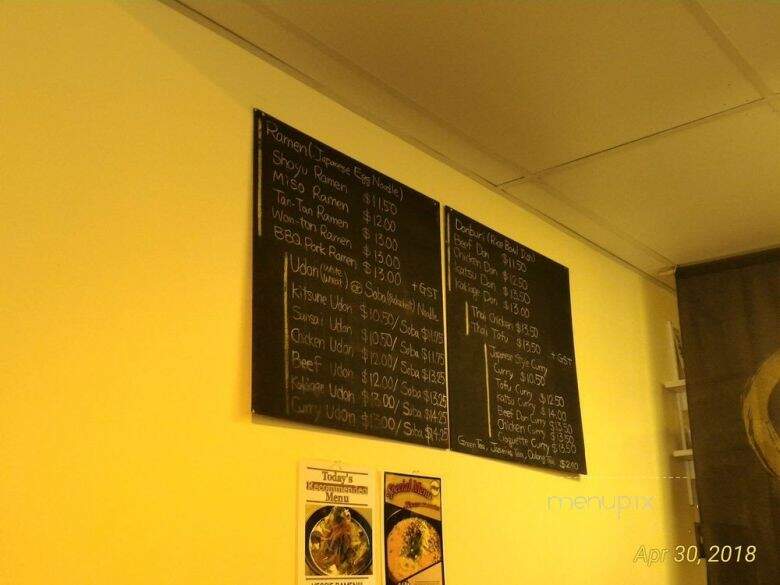 Ramen (Japanese Egg Noodle)
Shoyu Ramen $11.50
Miso Ramen $12.00
Tan-Tan Ramen $13.00
Won-ton Ramen $13.00
BBQ Pork Ramen $13.00
+GST
Udon (White Wheat) or Soba (Buckwheat) Noodle
Kitsune Udon $10.50/Soba $11.75
Sansai Udon $10.50/Soba $11.75
Chicken Udon $12.00/Soba $13.25
Beef Udon $12.00/Soba $13.25
Kakiage Udon $13.00/Soba $14.25
Curry Udon $13.00/Soba $14.25
Donburi (Rice Bowl Dish)
Beef Don $11.50
Chicken Don $12.50
Katsu Don $13.50
Kakiage Don $13.00
Thai Chicken $13.50
Thai Tofu $13.50
+GST
Japanese Style Curry
Curry $10.50
Tofu Curry $12.50
Katsu Curry $14.00
Beef Don Curry $13.50
Chicken Curry $13.50
Croquette Curry $13.50
Green Tea, Jasmine Tea, Oolong Tea $2.10
Today's
Recommended
Menu
Special Menu
menupix
Apr 30, 2018